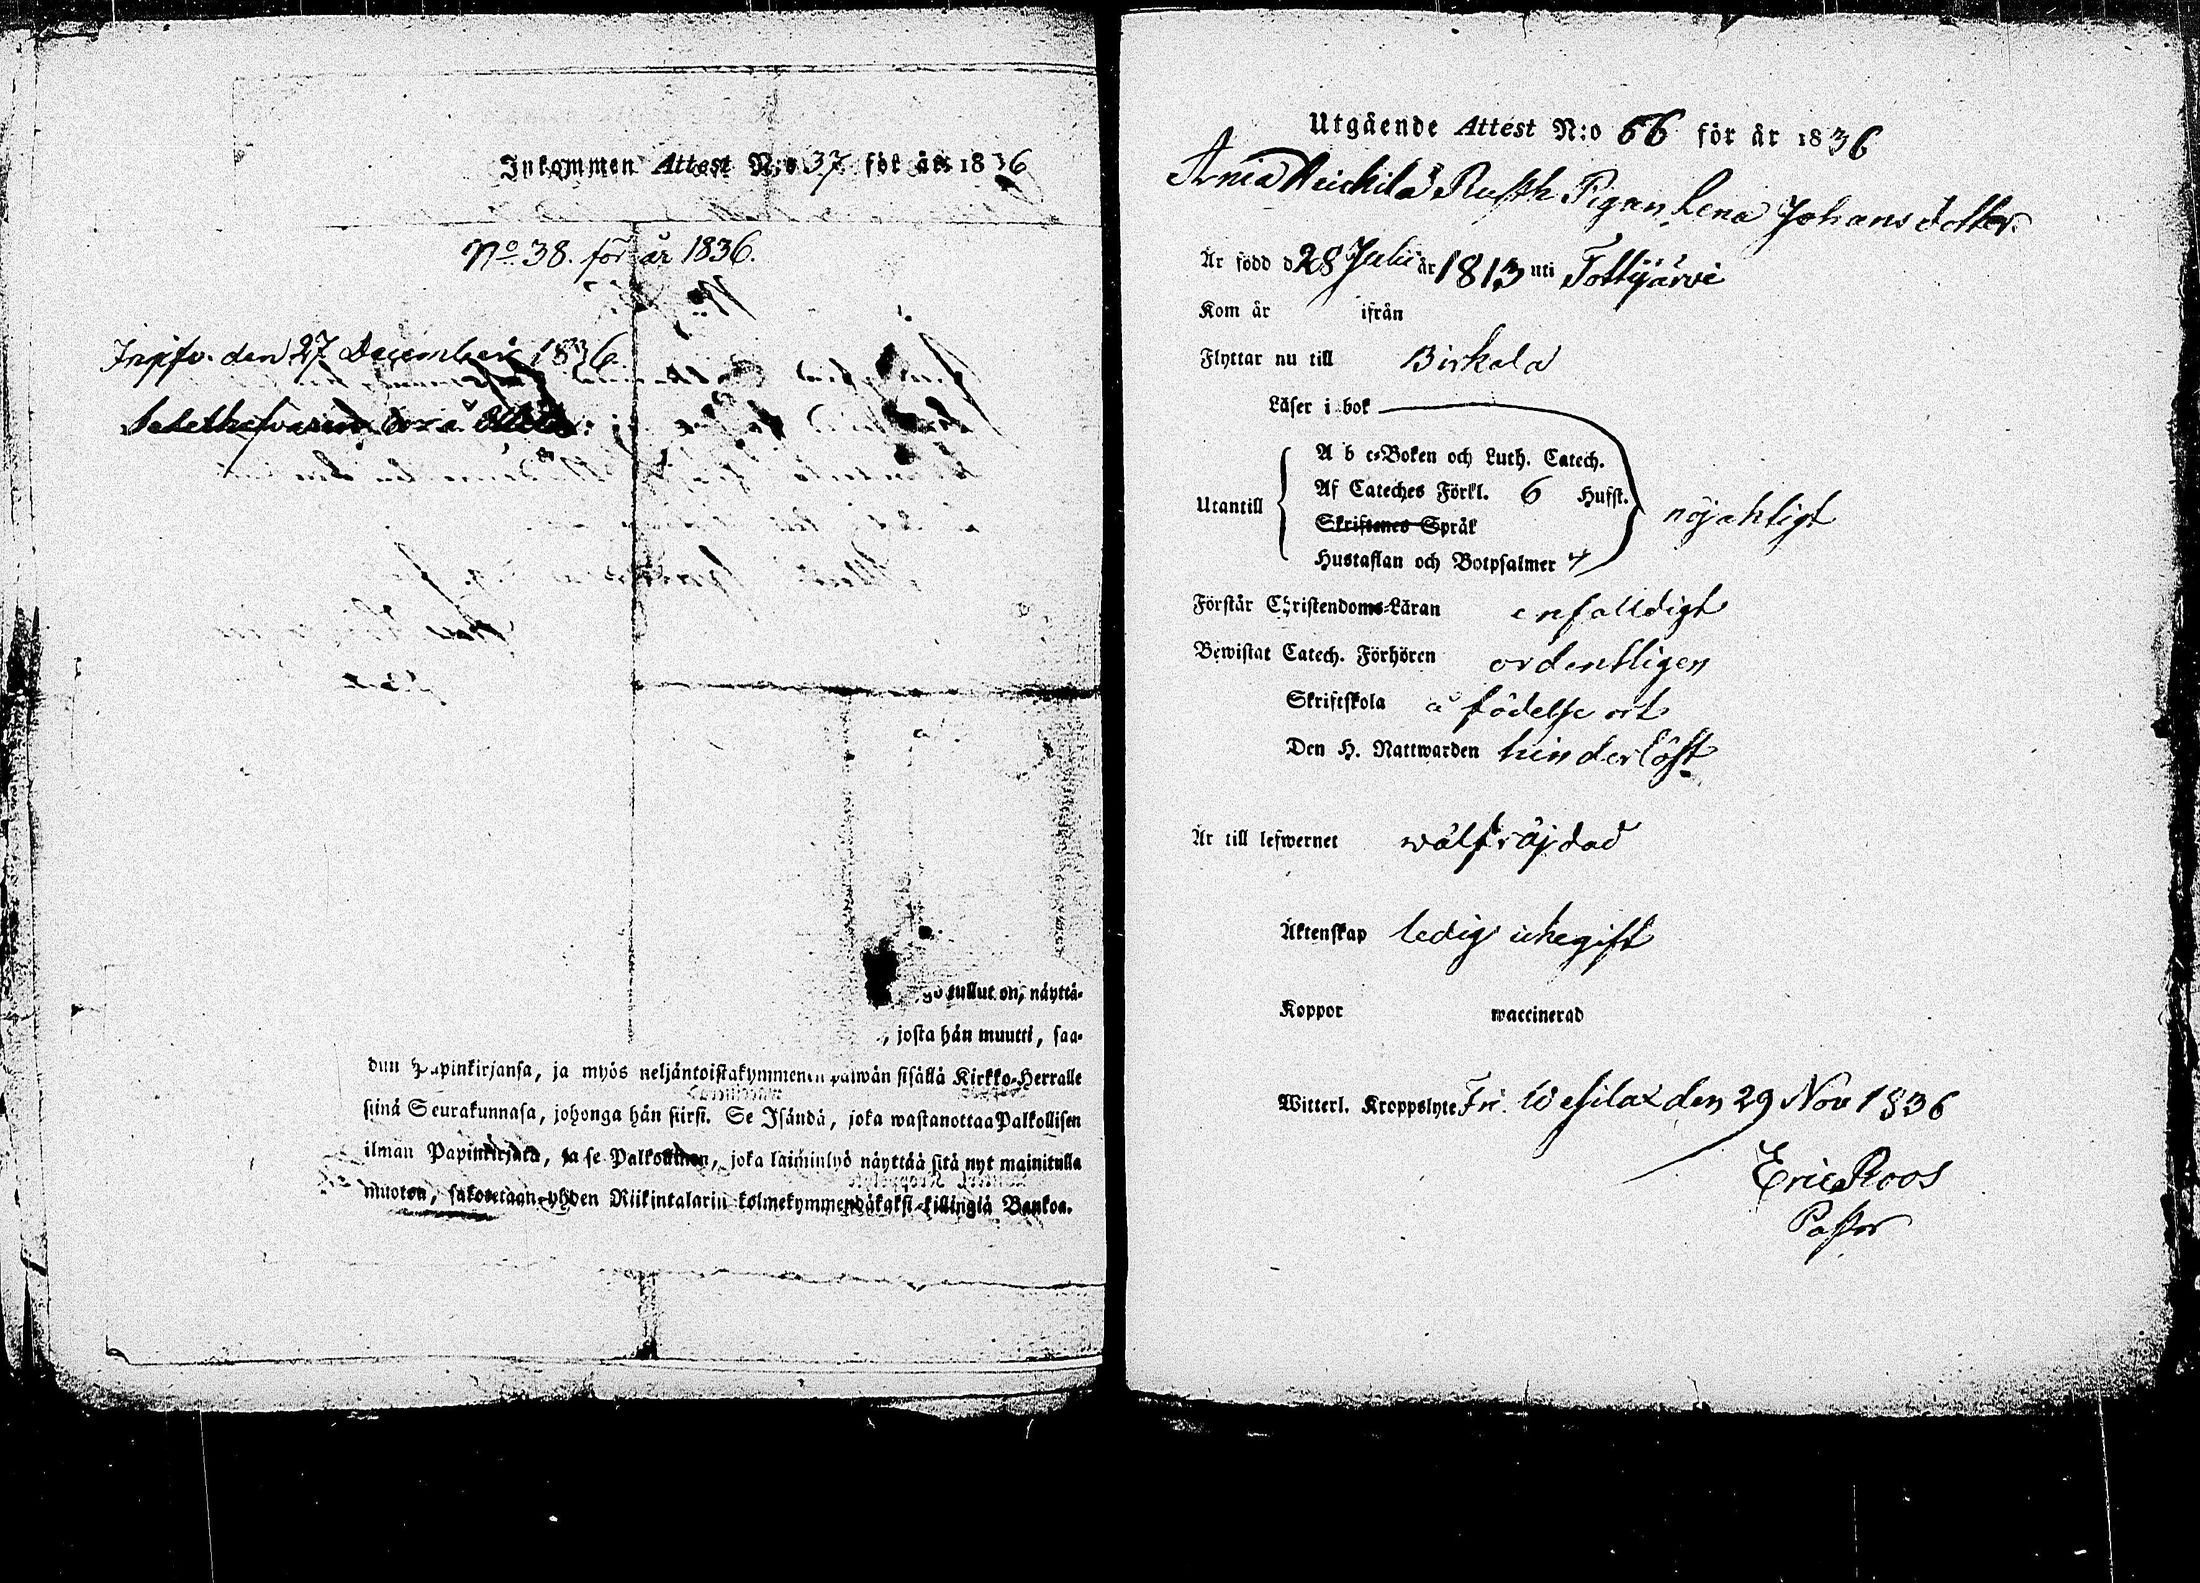 Inkommen Attest N:o 37. för år 1836
No. 38. för år 1836.
den 27 December 1836.
tullut on, näyttä-
, josta hän muutti, saa-
dun Papinkirjansa, ja myös neljäntoistakymmenen päiwän sisällä Kirkko-Herralle
siinä Seurakunnasa, johonga hän siirsi. Se Isändä, joka wastanottaa Palkollisen
ilman Papinkirjata, ja se Palkollinen, joka laiminlyö näyttää sitä nyt mainitulla
muoton, sakotetaan yhden Riikintalarin kolmekymmendäkaksi killingiä Bankoa.
Utgående Attest N:o 66 för år 1836
Pigan Lena Johans dotter.
Är född d 28 Julii år 1813 uti Tottijärvi
Kom år ifrån
Flyttar nu till Birkala
Läser i bok
Utantill
A b c-Boken och Luth. Catech.
Af Cateches Förkl. 6 Hufst.
Skriftenes Språk
Hustaflan och Botpsalmer
nöjaktigt
Förstår Christendoms-Läran enfalldigt
Bewistat Catech. Förhören ordentligen
Skriftskola å födelse ort
Den H. Nattwarden hinderlöst
Är till lefwernet wälfräjdad
Äktenskap ledig ickegift
Koppor waccinerad
Witterl. Kroppslyte Fri. Wesilax den 29 Nov 1836
Eric Roos
Pastor